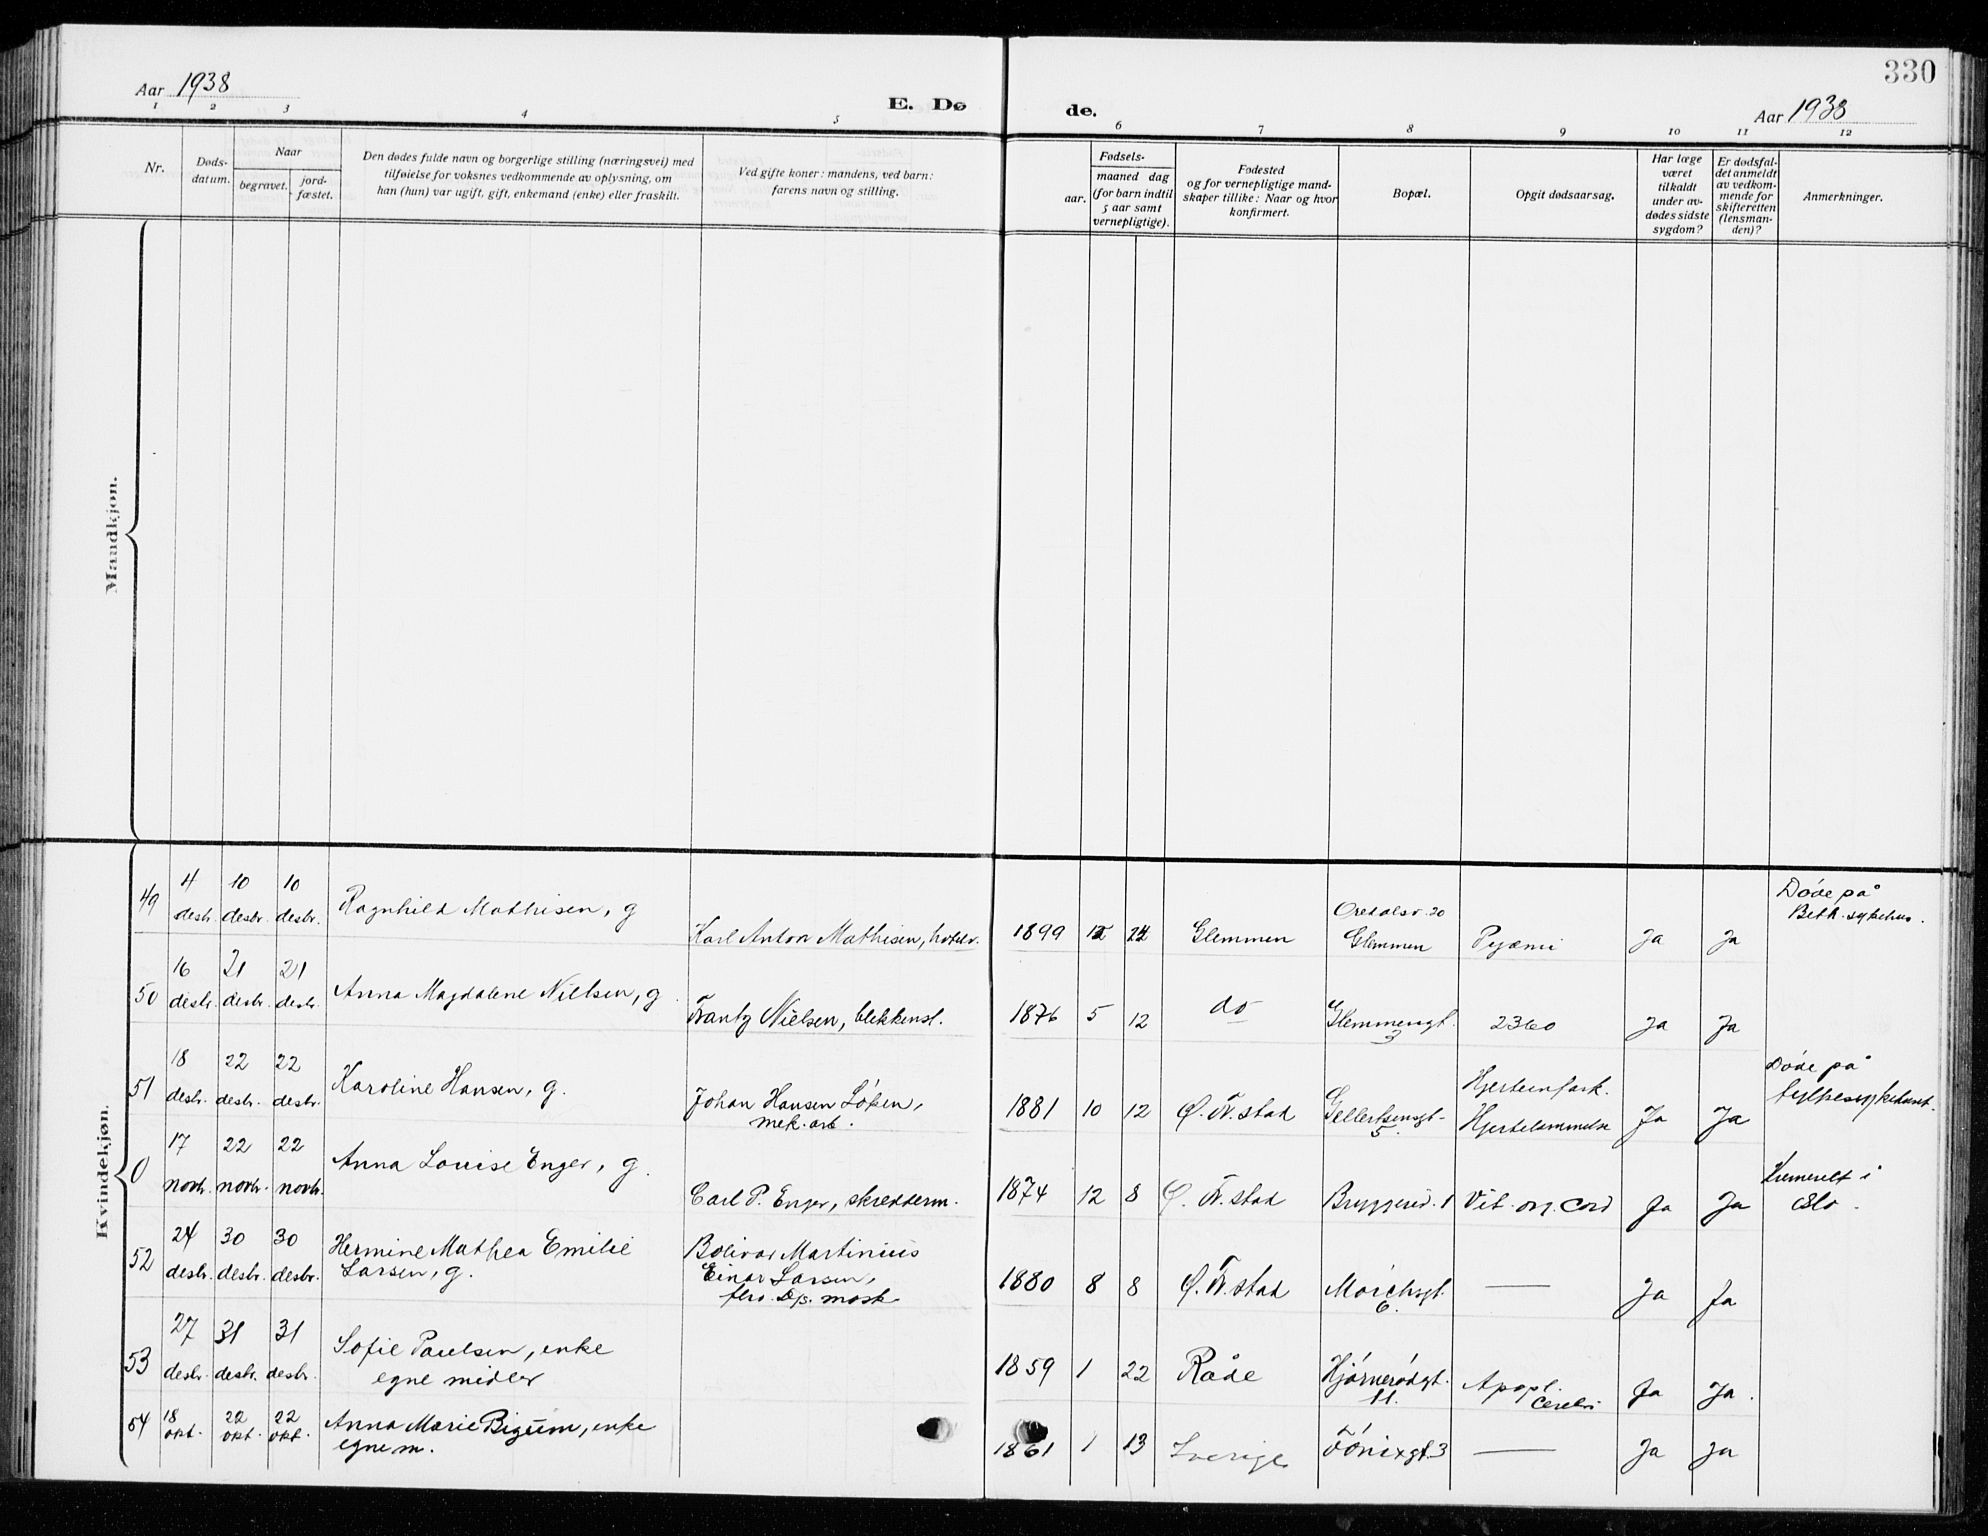 330
Aar 1938
E. Dø
de.
Aar 1938
1 2 3 4 5 6 7 8 9 10 11 12
Nr.
Døds-
datum.
Naar
begravet.
jord-
fæstet.
Den dødes fulde navn og borgerlige stilling (næringsvei) med
tilføielse for voksnes vedkommende av oplysning, om
han (hun) var ugift, gift, enkemand (enke) eller fraskilt.
Ved gifte koner: mandens, ved barn:
farens navn og stilling.
Fødsels-
aar.
maaned dag
(for barn indtil
5 aar samt
vernepligtige).
Fødested
og for vernepligtige mand-
skaper tillike: Naar og hvor
konfirmert.
Bopæl.
Opgit dødsaarsag.
Har læge
været
tilkaldt
under av-
dødes sidste
sygdom?
Er dødsfal-
det anmeldt
av vedkom-
mende for
skifteretten
(lensman-
den)?
Anmerkninger.
Mandkjøn.
Kvindekjøn.
49
4 10 10
desbr. desbr. desbr.
Ragnhild Mathisen, g
Karl Anton Mathisen,
1899 12 24 Glemmen
Glemmen
Pyæmi
Ja Ja
Døde på
Beth. sykehus.
50
16 21 21
desbr. desbr. desbr.
Anna Magdalene Nielsen, g.
Frantz Nielsen, blekkensl.
1876 5 12 do
Glemmengt.
3
2360
Ja Ja
51
18 22 22
desbr. desbr. desbr.
Karoline Hansen, g.
Johan Hansen Løken,
mek. arb.
1881 10 12 Ø. Fr. stad
Gellertsensgt.
5.
Hjerteinfark.
Hjertelammelse
Ja Ja
Døde på
fylkessykehuset.
0
17 22 22
novbr. novbr. novbr.
Anna Louise Enger, g.
Carl P. Enger, skredderm.
1874 12 8 Ø. Fr. stad
Bryggerivd. 1
Vit. org. Cord
Ja Ja
Kremert i
Oslo.
52
24 30 30
desbr. desbr. desbr.
Hermine Mathea Emilie
Larsen, g.
Bolivar Martinius
Einar Larsen,
1880 8 8 Ø. Fr. stad
6.
—
Ja Ja
53
27 31 31
desbr. desbr. desbr.
Sofie Paulsen, enke
egne midler
1859 1 22 Råde
Hjørnerødgt.
11.
Apopl.
Cerebri
Ja Ja.
54
18 22 22
okt. okt. okt.
Anna Marie Bigum, enke
egne m.
1861 1 13 Sverige
Fönixgt. 3
—
Ja Ja